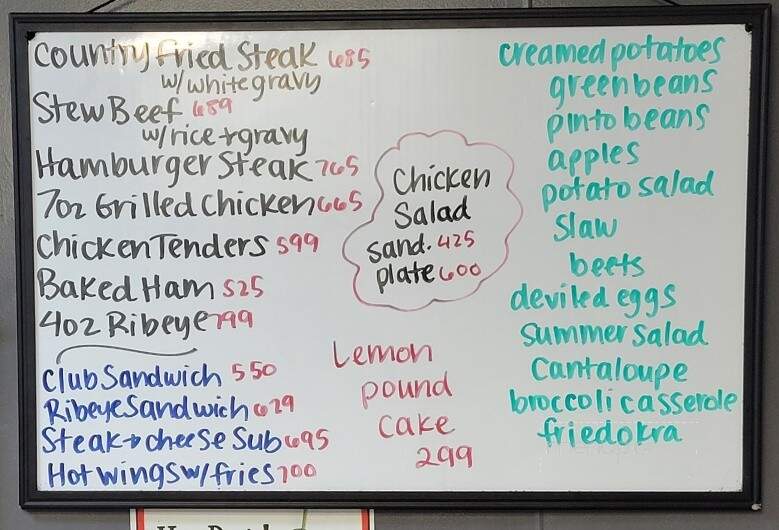 Country Fried Steak 685
w/white gravy
Stew Beef 689
w/rice + gravy
Hamburger Steak 765
7oz Grilled Chicken 665
Chicken Tenders 599
Baked Ham 525
4oz Ribeye 799
Club Sandwich 550
Ribeye Sandwich 629
Steak + cheese Sub 695
Hot wings w/ fries 700
Chicken
Salad
sand. 425
plate 600
Lemon
pound
cake
299
creamed potatoes
green beans
pinto beans
apples
potato salad
slaw
beets
deviled eggs
summer salad
cantaloupe
broccoli casserole
fried okra